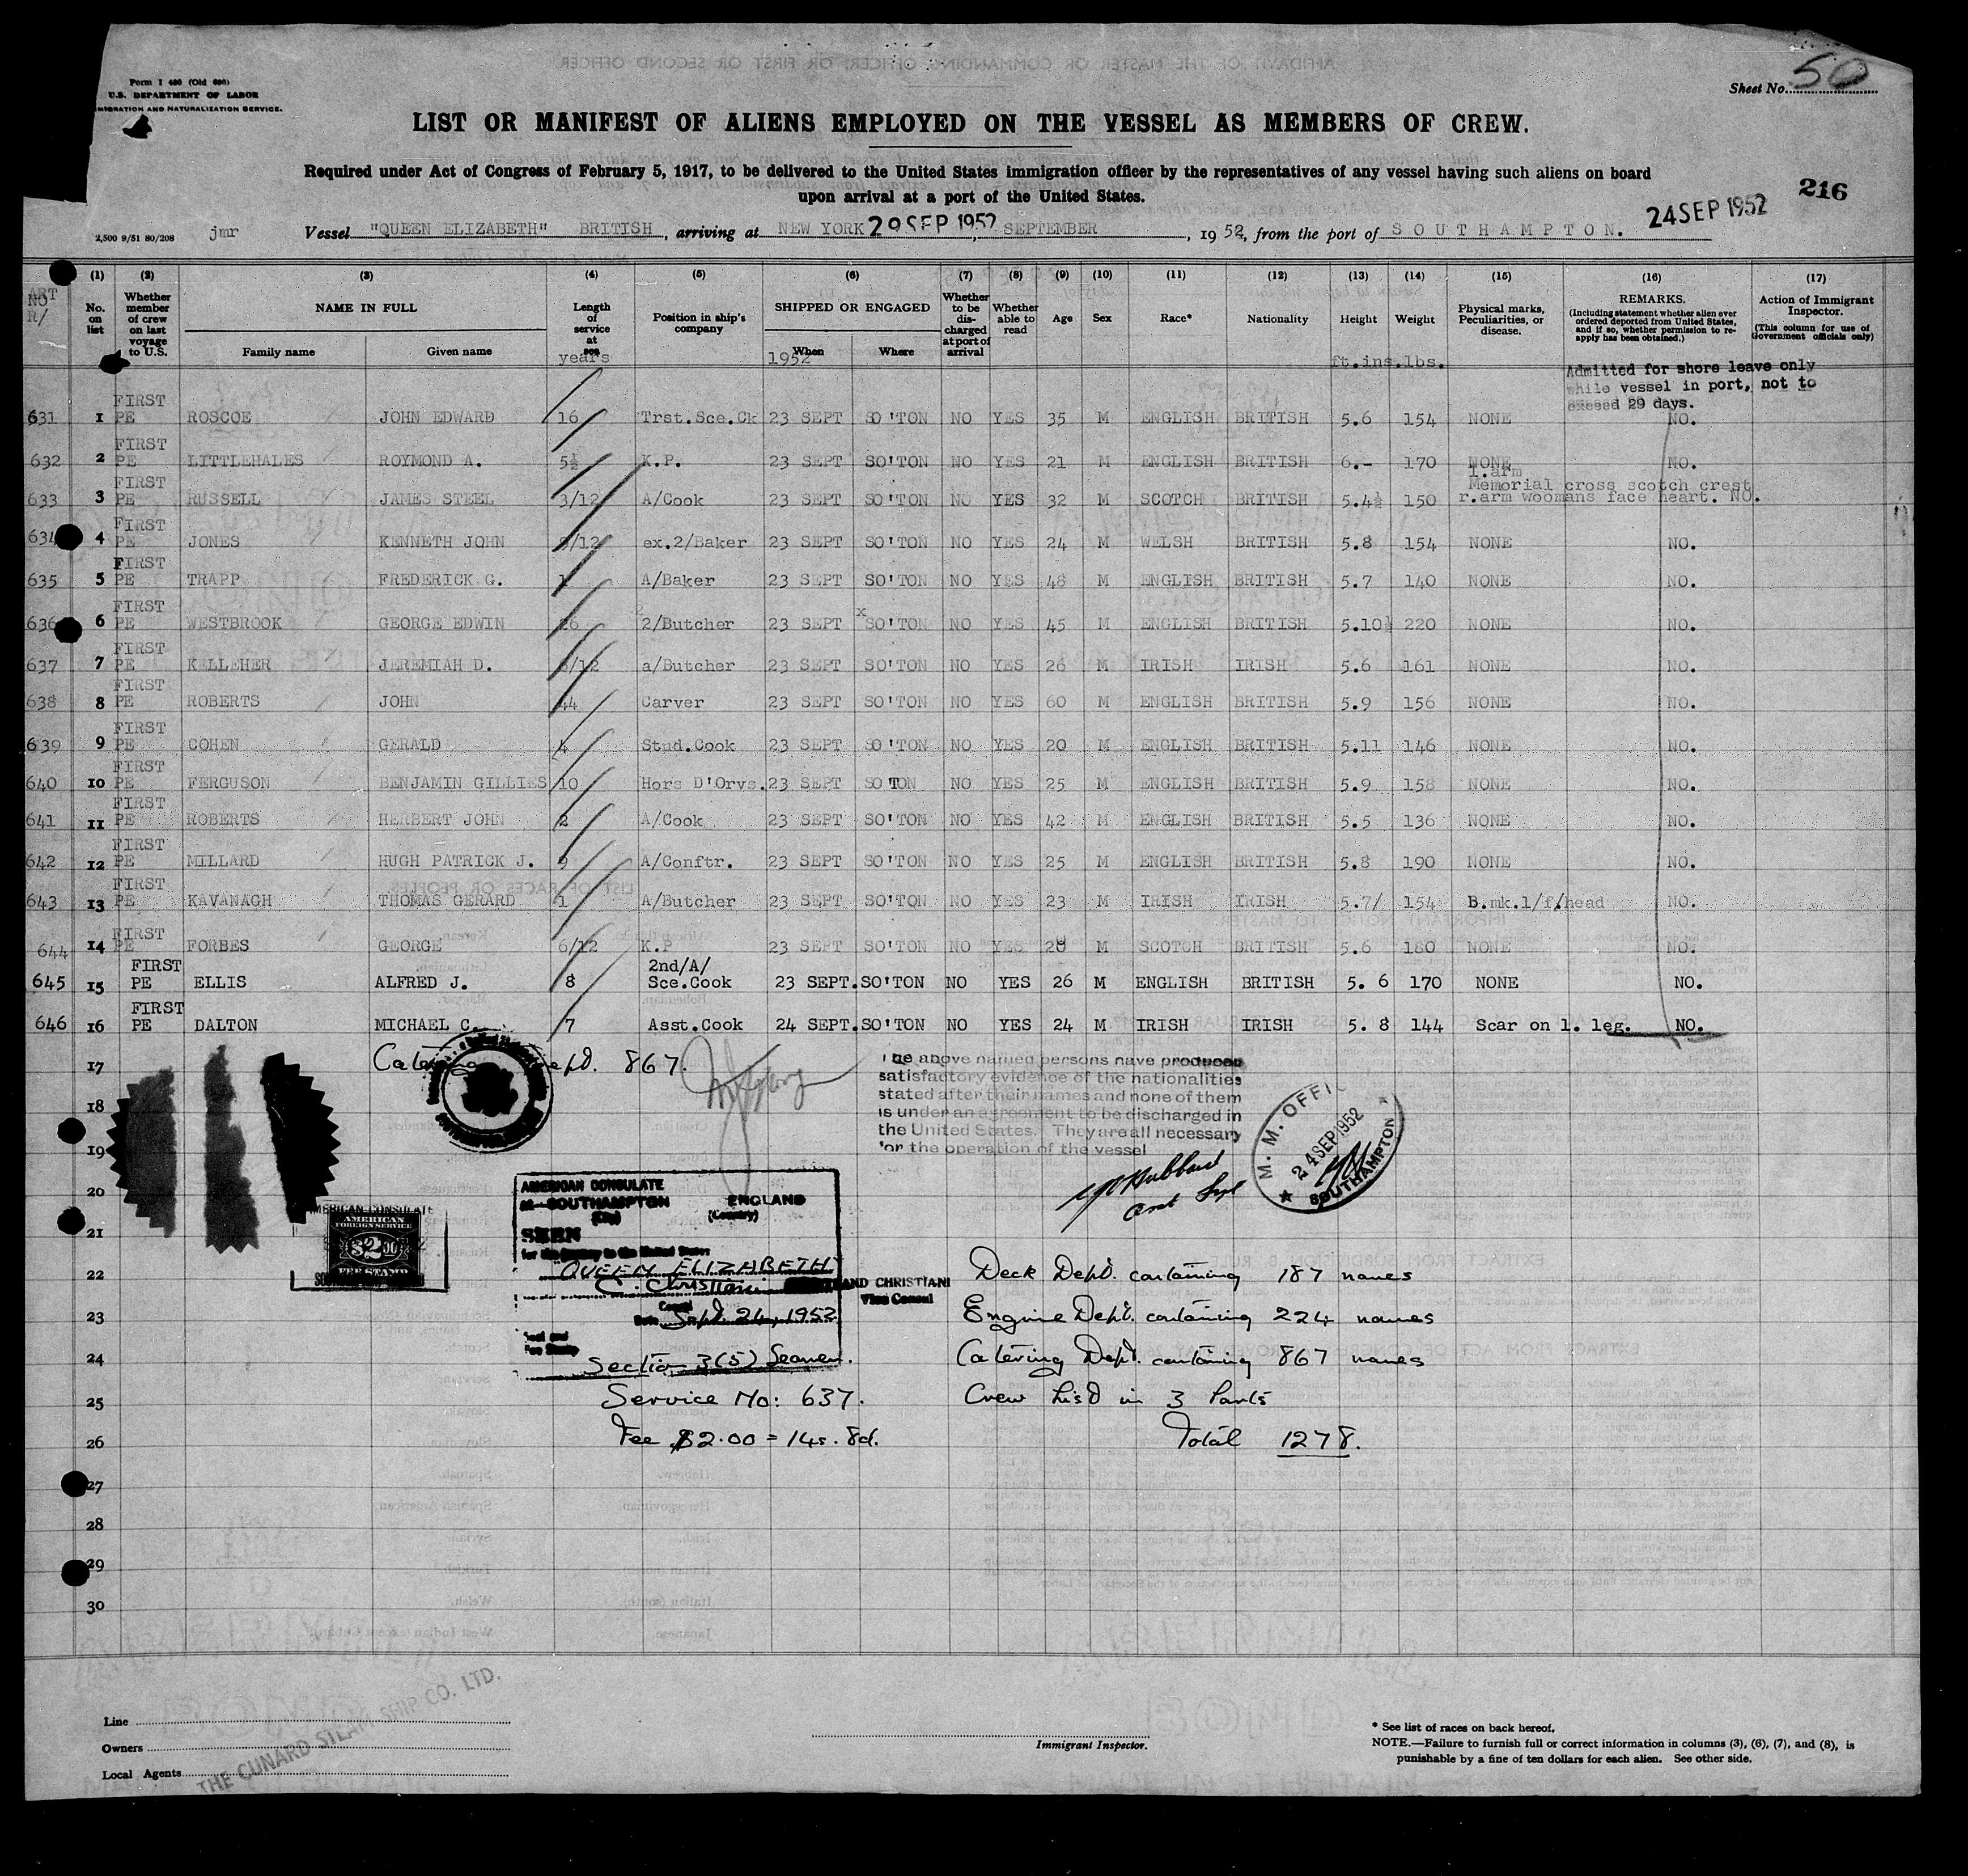 Form I 480 (Old 680)
U.S. DEPARTMENT OF LABOR
IMMIGRATION AND NATURALIZATION SERVICE.
Sheet No. 50
LIST OR MANIFEST OF ALIENS EMPLOYED ON THE VESSEL AS MEMBERS OF CREW.
Required under Act of Congress of February 5, 1917, to be delivered to the United States immigration officer by the representatives of any vessel having such aliens on board
upon arrival at a port of the United States.
216
24 SEP 1952
2,500 9/51 80/208 jmr Vessel "QUEEN ELIZABETH" BRITISH, arriving at NEW YORK 29 SEP 1952, SEPTEMBER, 1952, from the port of SOUTHAMPTON.
(1) (2) (3) (4) (5) (6) (7) (8) (9) (10) (11) (12) (13) (14) (15) (16) (17)
No. on list
Whether member of crew on last voyage to U.S.
NAME IN FULL
Family name Given name
Length of service at sea years
Position in ship's company
SHIPPED OR ENGAGED
1952 When Where
Whether to be discharged at port of arrival
Whether able to read
Age Sex Race* Nationality Height Weight
ft.ins. lbs.
Physical marks, Peculiarities, or disease.
REMARKS.
(Including statement whether alien ever ordered deported from United States, and if so, whether permission to re-apply has been obtained.)
Action of Immigrant Inspector.
(This column for use of Government officials only)
Admitted for shore leave only
while vessel in port, not to
exceed 29 days.
631 1 FIRST PE ROSCOE JOHN EDWARD 16 Trst.Sce.Ck 23 SEPT SO'TON NO YES 35 M ENGLISH BRITISH 5.6 154 NONE NO.
632 2 FIRST PE LITTLEHALES ROYMOND A. 5½ K.P. 23 SEPT SO'TON NO YES 21 M ENGLISH BRITISH 6.- 170 NONE NO.
633 3 FIRST PE RUSSELL JAMES STEEL 3/12 A/Cook 23 SEPT SO'TON NO YES 32 M SCOTCH BRITISH 5.4½ 150 l.arm Memorial cross scotch crest r.arm woomans face heart. NO.
634 4 FIRST PE JONES KENNETH JOHN /12 ex.2/Baker 23 SEPT SO'TON NO YES 24 M WELSH BRITISH 5.8 154 NONE NO.
635 5 FIRST PE TRAPP FREDERICK G. 1 A/Baker 23 SEPT SO'TON NO YES 48 M ENGLISH BRITISH 5.7 140 NONE NO.
636 6 FIRST PE WESTBROOK GEORGE EDWIN 26 2/Butcher 23 SEPT x SO'TON NO YES 45 M ENGLISH BRITISH 5.10½ 220 NONE NO.
637 7 FIRST PE KELLEHER JEREMIAH D. /12 a/Butcher 23 SEPT SO'TON NO YES 26 M IRISH IRISH 5.6 161 NONE NO.
638 8 FIRST PE ROBERTS JOHN 44 Carver 23 SEPT SO'TON NO YES 60 M ENGLISH BRITISH 5.9 156 NONE NO.
639 9 FIRST PE COHEN GERALD 4 Stud.Cook 23 SEPT SO'TON NO YES 20 M ENGLISH BRITISH 5.11 146 NONE NO.
640 10 FIRST PE FERGUSON BENJAMIN GILLIES 10 Hors D'Orvs. 23 SEPT SO'TON NO YES 25 M ENGLISH BRITISH 5.9 158 NONE NO.
641 11 FIRST PE ROBERTS HERBERT JOHN 2 A/Cook 23 SEPT SO'TON NO YES 42 M ENGLISH BRITISH 5.5 136 NONE NO.
642 12 FIRST PE MILLARD HUGH PATRICK J. 9 A/Conftr. 23 SEPT SO'TON NO YES 25 M ENGLISH BRITISH 5.8 190 NONE NO.
643 13 FIRST PE KAVANAGH THOMAS GERARD 1 A/Butcher 23 SEPT SO'TON NO YES 23 M IRISH IRISH 5.7/ 154 B.mk.l/f/head NO.
644 14 FIRST PE FORBES GEORGE 6/12 K.P 23 SEPT SO'TON NO YES M SCOTCH BRITISH 5.6 180 NONE NO.
645 15 FIRST PE ELLIS ALFRED J. 8 2nd/A/ Sce.Cook 23 SEPT. SO'TON NO YES 26 M ENGLISH BRITISH 5. 6 170 NONE NO.
646 16 FIRST PE DALTON MICHAEL C. 7 Asst.Cook 24 SEPT. SO'TON NO YES 24 M IRISH IRISH 5. 8 144 Scar on l. leg. NO.
17
Catering Dept. 867.
The above named persons have produced
satisfactory evidence of the nationalities
stated after their names and none of them
is under an agreement to be discharged in
the United States. They are all necessary
for the operation of the vessel
M. M. OFFICE
24 SEP 1952
SOUTHAMPTON
18
19
20
21
22
23
24
25
26
27
28
29
30
AMERICAN CONSULATE
AMERICAN FOREIGN SERVICE
$2.00
FEE STAMP
AMERICAN CONSULATE
at SOUTHAMPTON ENGLAND
(City) (Country)
SEEN
for the journey to the United States
QUEEN ELIZABETH
C. Christiani
AND CHRISTIANI
Vice Consul
Consul
Date Sept. 24, 1952
Seal and
Fee Stamp
Section 3(5) Seamen.
Service No: 637.
Fee $2.00 = 14s. 8d.
Hubbard
Deck Dept. containing 187 names
Engine Dept. containing 224 names
Catering Dept. containing 867 names
Crew list in 3 Parts
Total 1278.
Line
Owners
Local Agents
THE CUNARD STEAM SHIP CO. LTD.
Immigrant Inspector.
* See list of races on back hereof.
NOTE.—Failure to furnish full or correct information in columns (3), (6), (7), and (8), is
punishable by a fine of ten dollars for each alien. See other side.